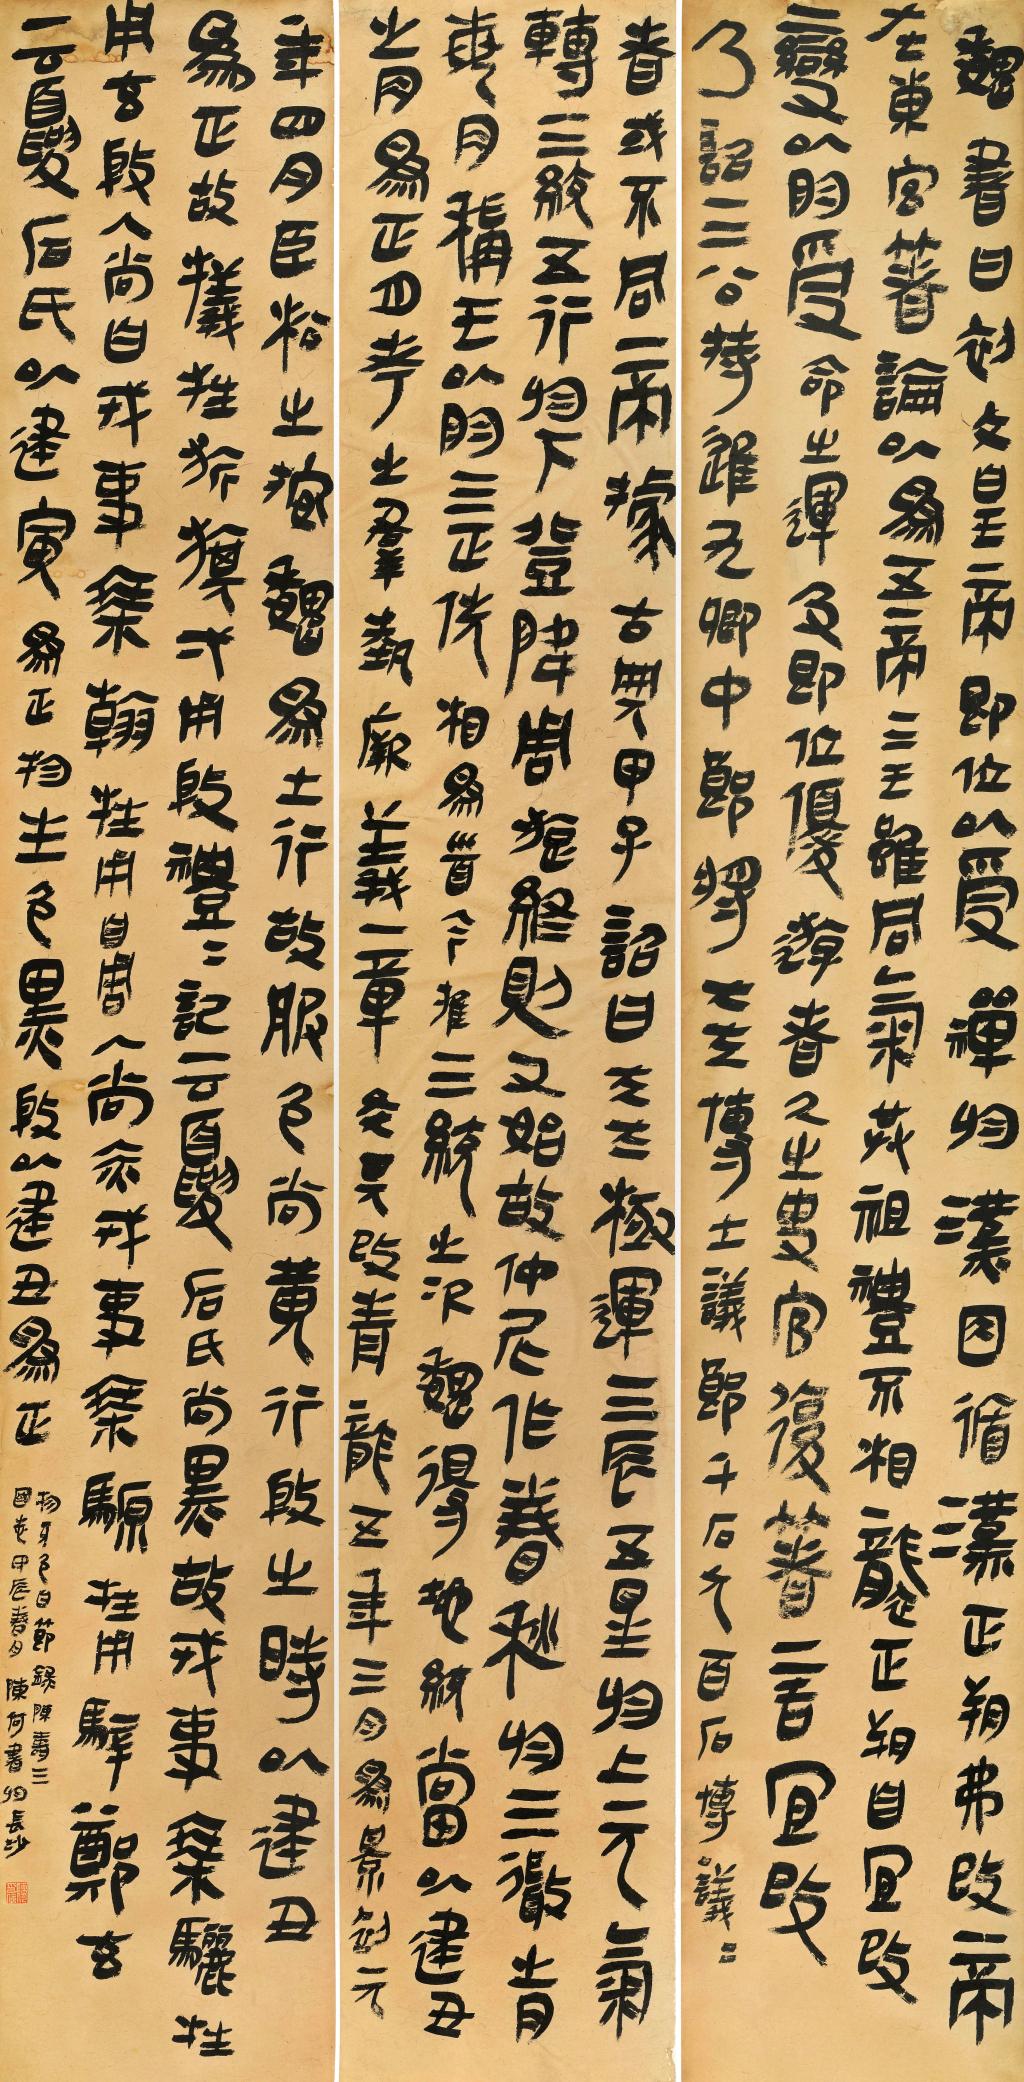 魏書曰初文皇帝即位以受禪於漢因循漢正朔弗改帝
在東宮著論以為五帝三王雖同氣共祖禮不相襲正朔自宜改
變以明受命之運及即位優游者久之史官復著言宜改
乃詔三公特進九卿中郎將大夫博士議郎千石六百石博議〻
者或不同帝據古典甲子詔曰夫太極運三辰五星於上元氣
轉三統五行於下登降周旋終則又始故仲尼作春秋於三微之月
每月稱王以明三正迭相為首今推三統之次魏得地統當以建丑
之月為正月考之群藝厥義章矣其改青龍五年三月為景初元
年四月臣松之按魏為土行故服色尚黃行殷之時以建丑
為正故犧牲旂旗弌用殷禮〻記云夏后氏尚黑故戎事乘驪牲
用玄殷人尚白戎事乘翰牲用白周人尚赤戎事乘騵牲用騂鄭玄
云夏后氏以建寅為正物生色黑殷以建丑為正
物牙色白節錄陳壽三
國志甲辰春月陳何書於長沙